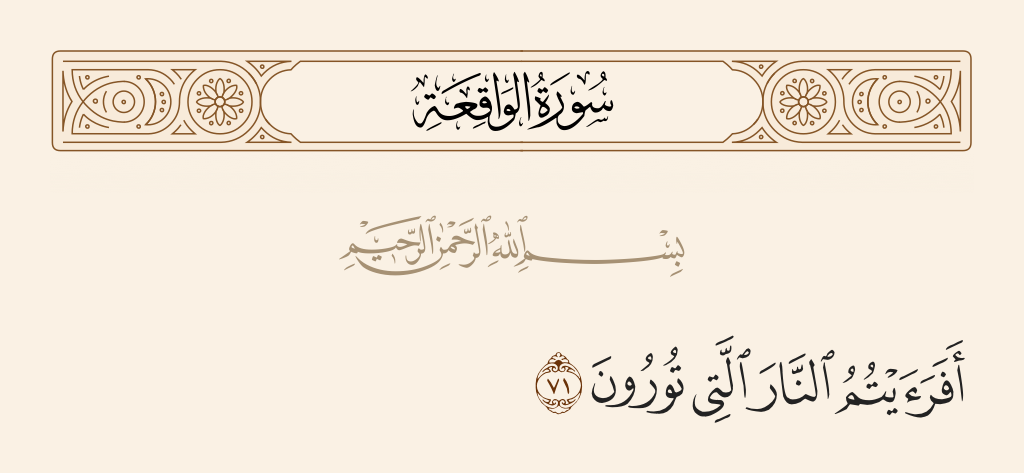 سُورَةُ الوَاقِعَةِ
بِسْمِ ٱللَّهِ ٱلرَّحْمَٰنِ ٱلرَّحِيمِ
أَفَرَءَيْتُمُ ٱلنَّارَ ٱلَّتِى تُورُونَ ٧١